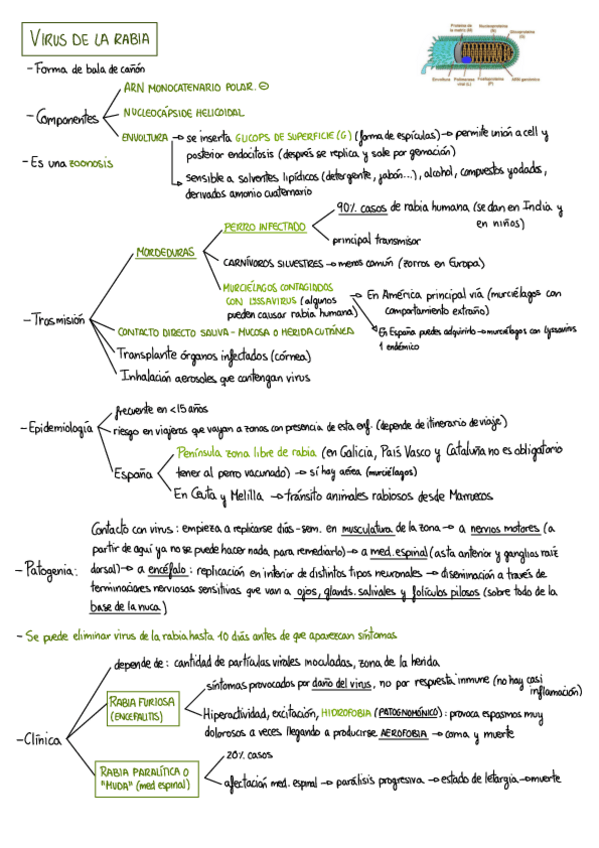 VIRUS DE LA RABIA
Proteína de la matriz (M)
Nucleoproteína (N)
Glicoproteína (G)
Envoltura
Polimerasa viral (L)
Fosfoproteína (P)
ARN genómico
- Forma de bala de cañón
- Componentes
ARN MONOCATENARIO POLAR ⊖
NUCLEOCÁPSIDE HELICOIDAL
ENVOLTURA → se inserta GLICOPS DE SUPERFICIE (G) (forma de espículas) → permite unión a cell y
posterior endocitosis (después se replica y sale por gemación)
sensible a solventes lipídicos (detergente, jabón...), alcohol, compuestos yodados,
derivados amonio cuaternario
- Es una zoonosis
- Trasmisión
MORDEDURAS
PERRO INFECTADO
90% casos de rabia humana (se dan en India y
en niños)
principal transmisor
CARNÍVOROS SILVESTRES → menos común (zorros en Europa)
MURCIÉLAGOS CONTAGIADOS
CON LYSSAVIRUS (algunos
pueden causar rabia humana)
→ En América principal vía (murciélagos con
comportamiento extraño)
En España puedes adquirirlo → murciélagos con lyssavirus
1 endémico
CONTACTO DIRECTO SALIVA - MUCOSA O HERIDA CUTÁNEA
Transplante órganos infectados (córnea)
Inhalación aerosoles que contengan virus
- Epidemiología
frecuente en <15 años
riesgo en viajeros que vayan a zonas con presencia de esta enf. (depende de itinerario de viaje)
España
Península zona libre de rabia (en Galicia, País Vasco y Cataluña no es obligatorio
tener al perro vacunado) → sí hay aérea (murciélagos)
En Ceuta y Melilla → tránsito animales rabiosos desde Marruecos
- Patogenia:
Contacto con virus: empieza a replicarse días-sem. en musculatura de la zona → a nervios motores (a
partir de aquí ya no se puede hacer nada para remediarlo) → a med. espinal (asta anterior y ganglios raíz
dorsal) → a encéfalo: replicación en interior de distintos tipos neuronales → diseminación a través de
terminaciones nerviosas sensitivas que van a ojos, glands. salivales y folículos pilosos (sobre todo de la
base de la nuca)
- Se puede eliminar virus de la rabia hasta 10 días antes de que aparezcan síntomas
- Clínica
depende de: cantidad de partículas virales inoculadas, zona de la herida
RABIA FURIOSA
(ENCEFALITIS)
síntomas provocados por daño del virus, no por respuesta inmune (no hay casi
inflamación)
Hiperactividad, excitación, HIDROFOBIA (PATOGNOMÓNICO): provoca espasmos muy
dolorosos a veces llegando a producirse AEROFOBIA → coma y muerte
RABIA PARALÍTICA O
"MUDA" (med espinal)
20% casos
afectación med. espinal → parálisis progresiva → estado de letargia → muerte